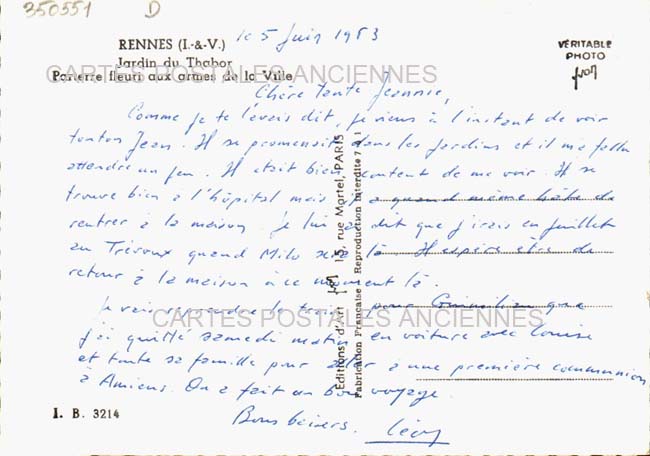 350551 D
le 5 Juin 1953
RENNES (I.-&-V.)
Jardin du Thabor
Parterre fleuri aux armes de la Ville
VÉRITABLE
PHOTO
yvon
CARTES POSTALES ANCIENNES
Chère tante Jeannie,
Comme je te l'avais dit, je viens à l'instant de voir
tonton Jean. Il se promenait dans les jardins et il m'a fallu
attendre un peu. Il était bien content de me voir. Il se
trouve bien à l'hôpital mais il a quand même hâte de
rentrer à la maison. Je lui ai dit que j'irais en juillet
au Trévoux quand Milo sera là. Il espère être de
retour à la maison à ce moment là.
Je vais reprendre le train pour que
j'ai quitté samedi matin en voiture avec Louise
et toute sa famille pour aller à une première communion
à Amiens. On a fait un bon voyage.
Bons baisers.
CARTES POSTALES ANCIENNES
Éditions d'art yvon 15, rue Martel, PARIS
Fabrication Française - Reproduction Interdite 7 1
I. B. 3214